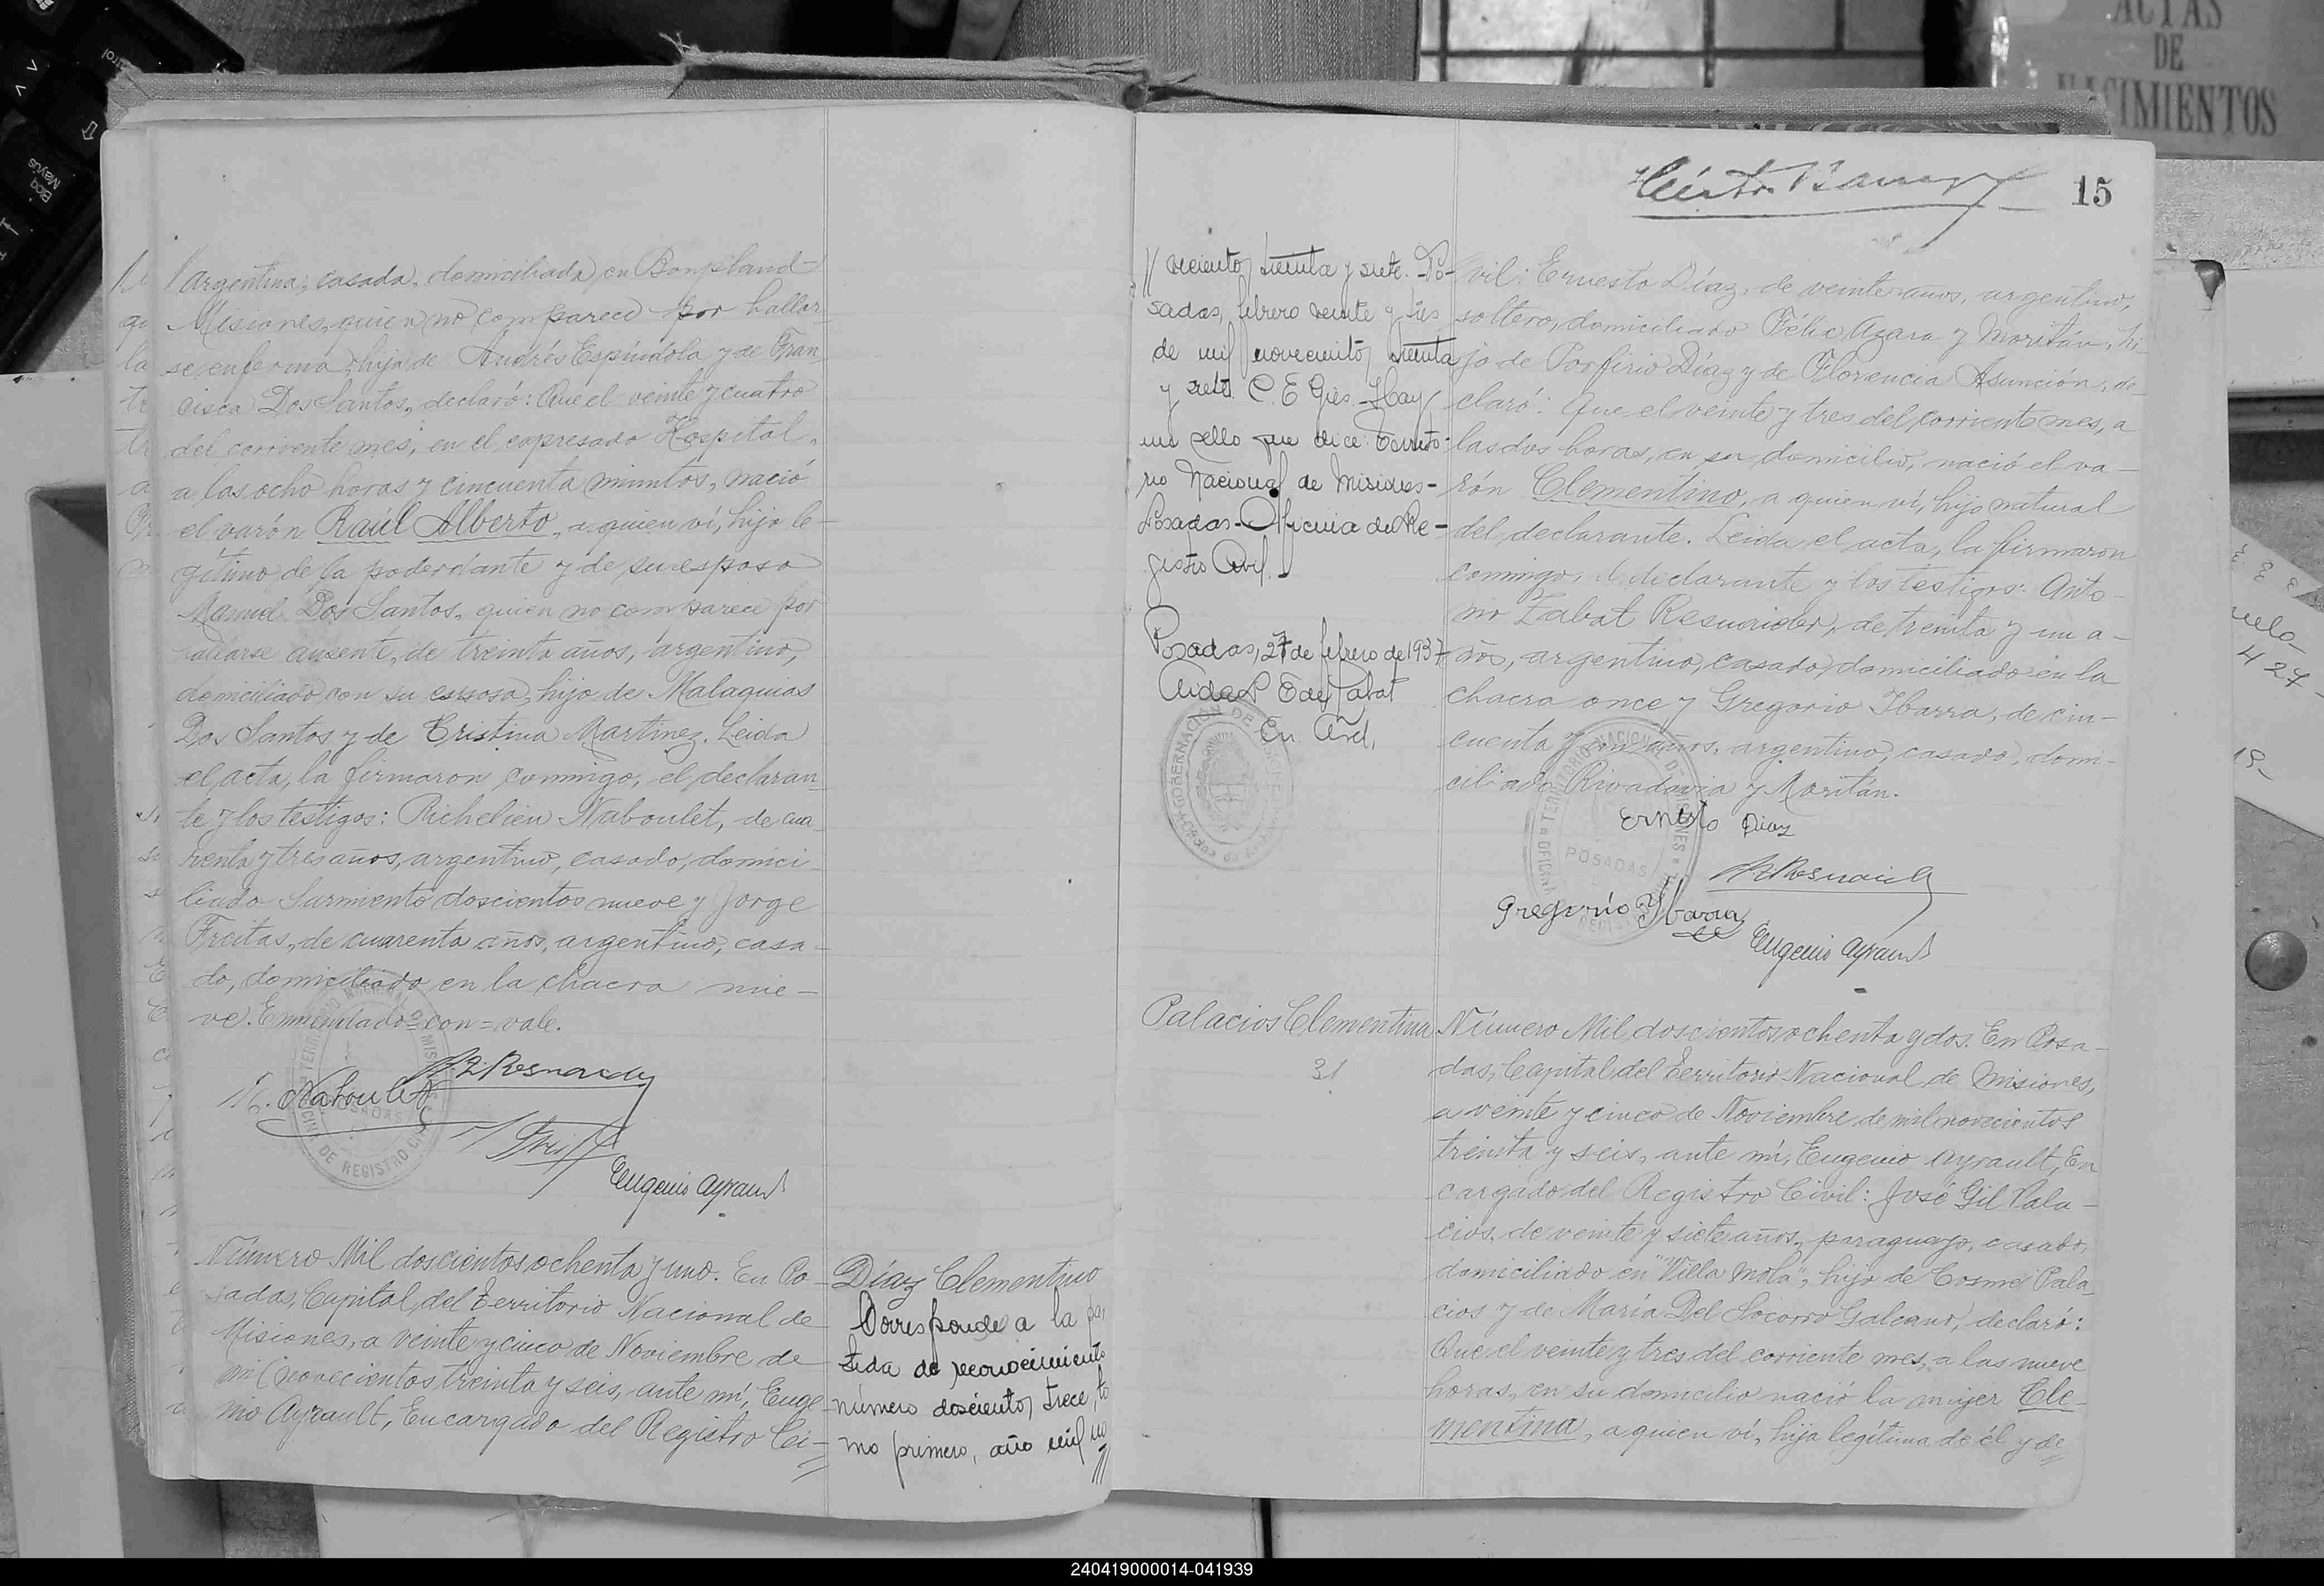 ACTAS
DE
NACIMIENTOS
Bloq
Mayús
15
argentina, casada, domiciliada en Bonpland-
Misiones, quien no comparece por hallar-
se enferma, hija de Andrés Espíndola y de Fran-
cisca Dos Santos, declaró: Que el veinte y cuatro
del corriente mes, en el expresado Hospital,
a las ocho horas y cincuenta minutos, nació
el varón Raúl Alberto, a quien ví, hijo le-
gítimo de la poderdante y de su esposo
Manuel Dos Santos, quien no comparece por
hallarse ausente, de treinta años, argentino,
domiciliado con su esposa, hijo de Malaquias
Dos Santos y de Cristina Martinez. Leida
el acta, la firmaron conmigo, el declaran-
te y los testigos: Richelieu Naboulet, de cua-
renta y tres años, argentino, casado, domici-
liado Sarmiento doscientos nueve y Jorge
Freitas, de cuarenta años, argentino, casa-
do, domiciliado en la chacra nue-
ve. Enmendado=con=vale.
R. Naboulet
Eugenio Ayrault
Número Mil doscientos ochenta y uno. En Po-
sadas, Capital del Territorio Nacional de
Misiones, a veinte y cinco de Noviembre de
mil novecientos treinta y seis, ante mí, Euge-
nio Ayrault, Encargado del Registro Ci-
Díaz Clementino
Corresponde a la par
tida de reconocimiento
número doscientos trece, to
mo primero, año mil no
//
// vecientos treinta y siete. Po-
sadas, febrero veinte y tres
de mil novecientos treinta
y siete. C. E. Hay
un sello que dice: Territo-
rio Nacional de Misiones-
Posadas-Oficina de Re-
gistro Civil.
Posadas, 27 de febrero de 1937
vil: Ernesto Díaz, de veinte años, argentino,
soltero, domiciliado Félix Azara y Moritán, hi-
jo de Porfirio Díaz y de Florencia Asunción, de-
claró: Que el veinte y tres del corriente mes, a
las dos horas, en su domicilio, nació el va-
rón Clementino, a quien ví, hijo natural
del declarante. Leida el acta, la firmaron
conmigo, el declarante y los testigos: Anto-
nio Zabat Resnaider, de treinta y un a-
ños, argentino, casado, domiciliado en la
chacra once y Gregorio Ibarra, de cin-
cuenta y un años, argentino, casado, domi-
ciliado Rivadavia y Moritán.
Ernesto Diaz
Gregorio Ybarra
Eugenio Ayrault
Palacios Clementina
31
Número Mil doscientos ochenta y dos. En Posa-
das, Capital del Territorio Nacional de Misiones,
a veinte y cinco de Noviembre de mil novecientos
treinta y seis, ante mí, Eugenio Ayrault, En
cargado del Registro Civil: José Gil Pala-
cios, de veinte y siete años, paraguayo, casado,
domiciliado en "Villa Mola", hijo de Cosme Pala-
cios y de María Del Socorro Galeano, declaró:
Que el veinte y tres del corriente mes, a las nueve
horas, en su domicilio nació la mujer Cle-
mentina, a quien ví, hija legítima de él y de
240419000014-041939